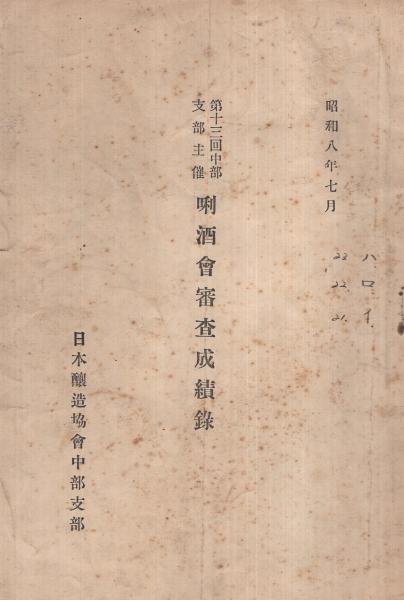 昭和八年七月
第十三回中部
支部主催
唎酒會審査成績錄
日本釀造協會中部支部
ハ ロ イ
23 22 21